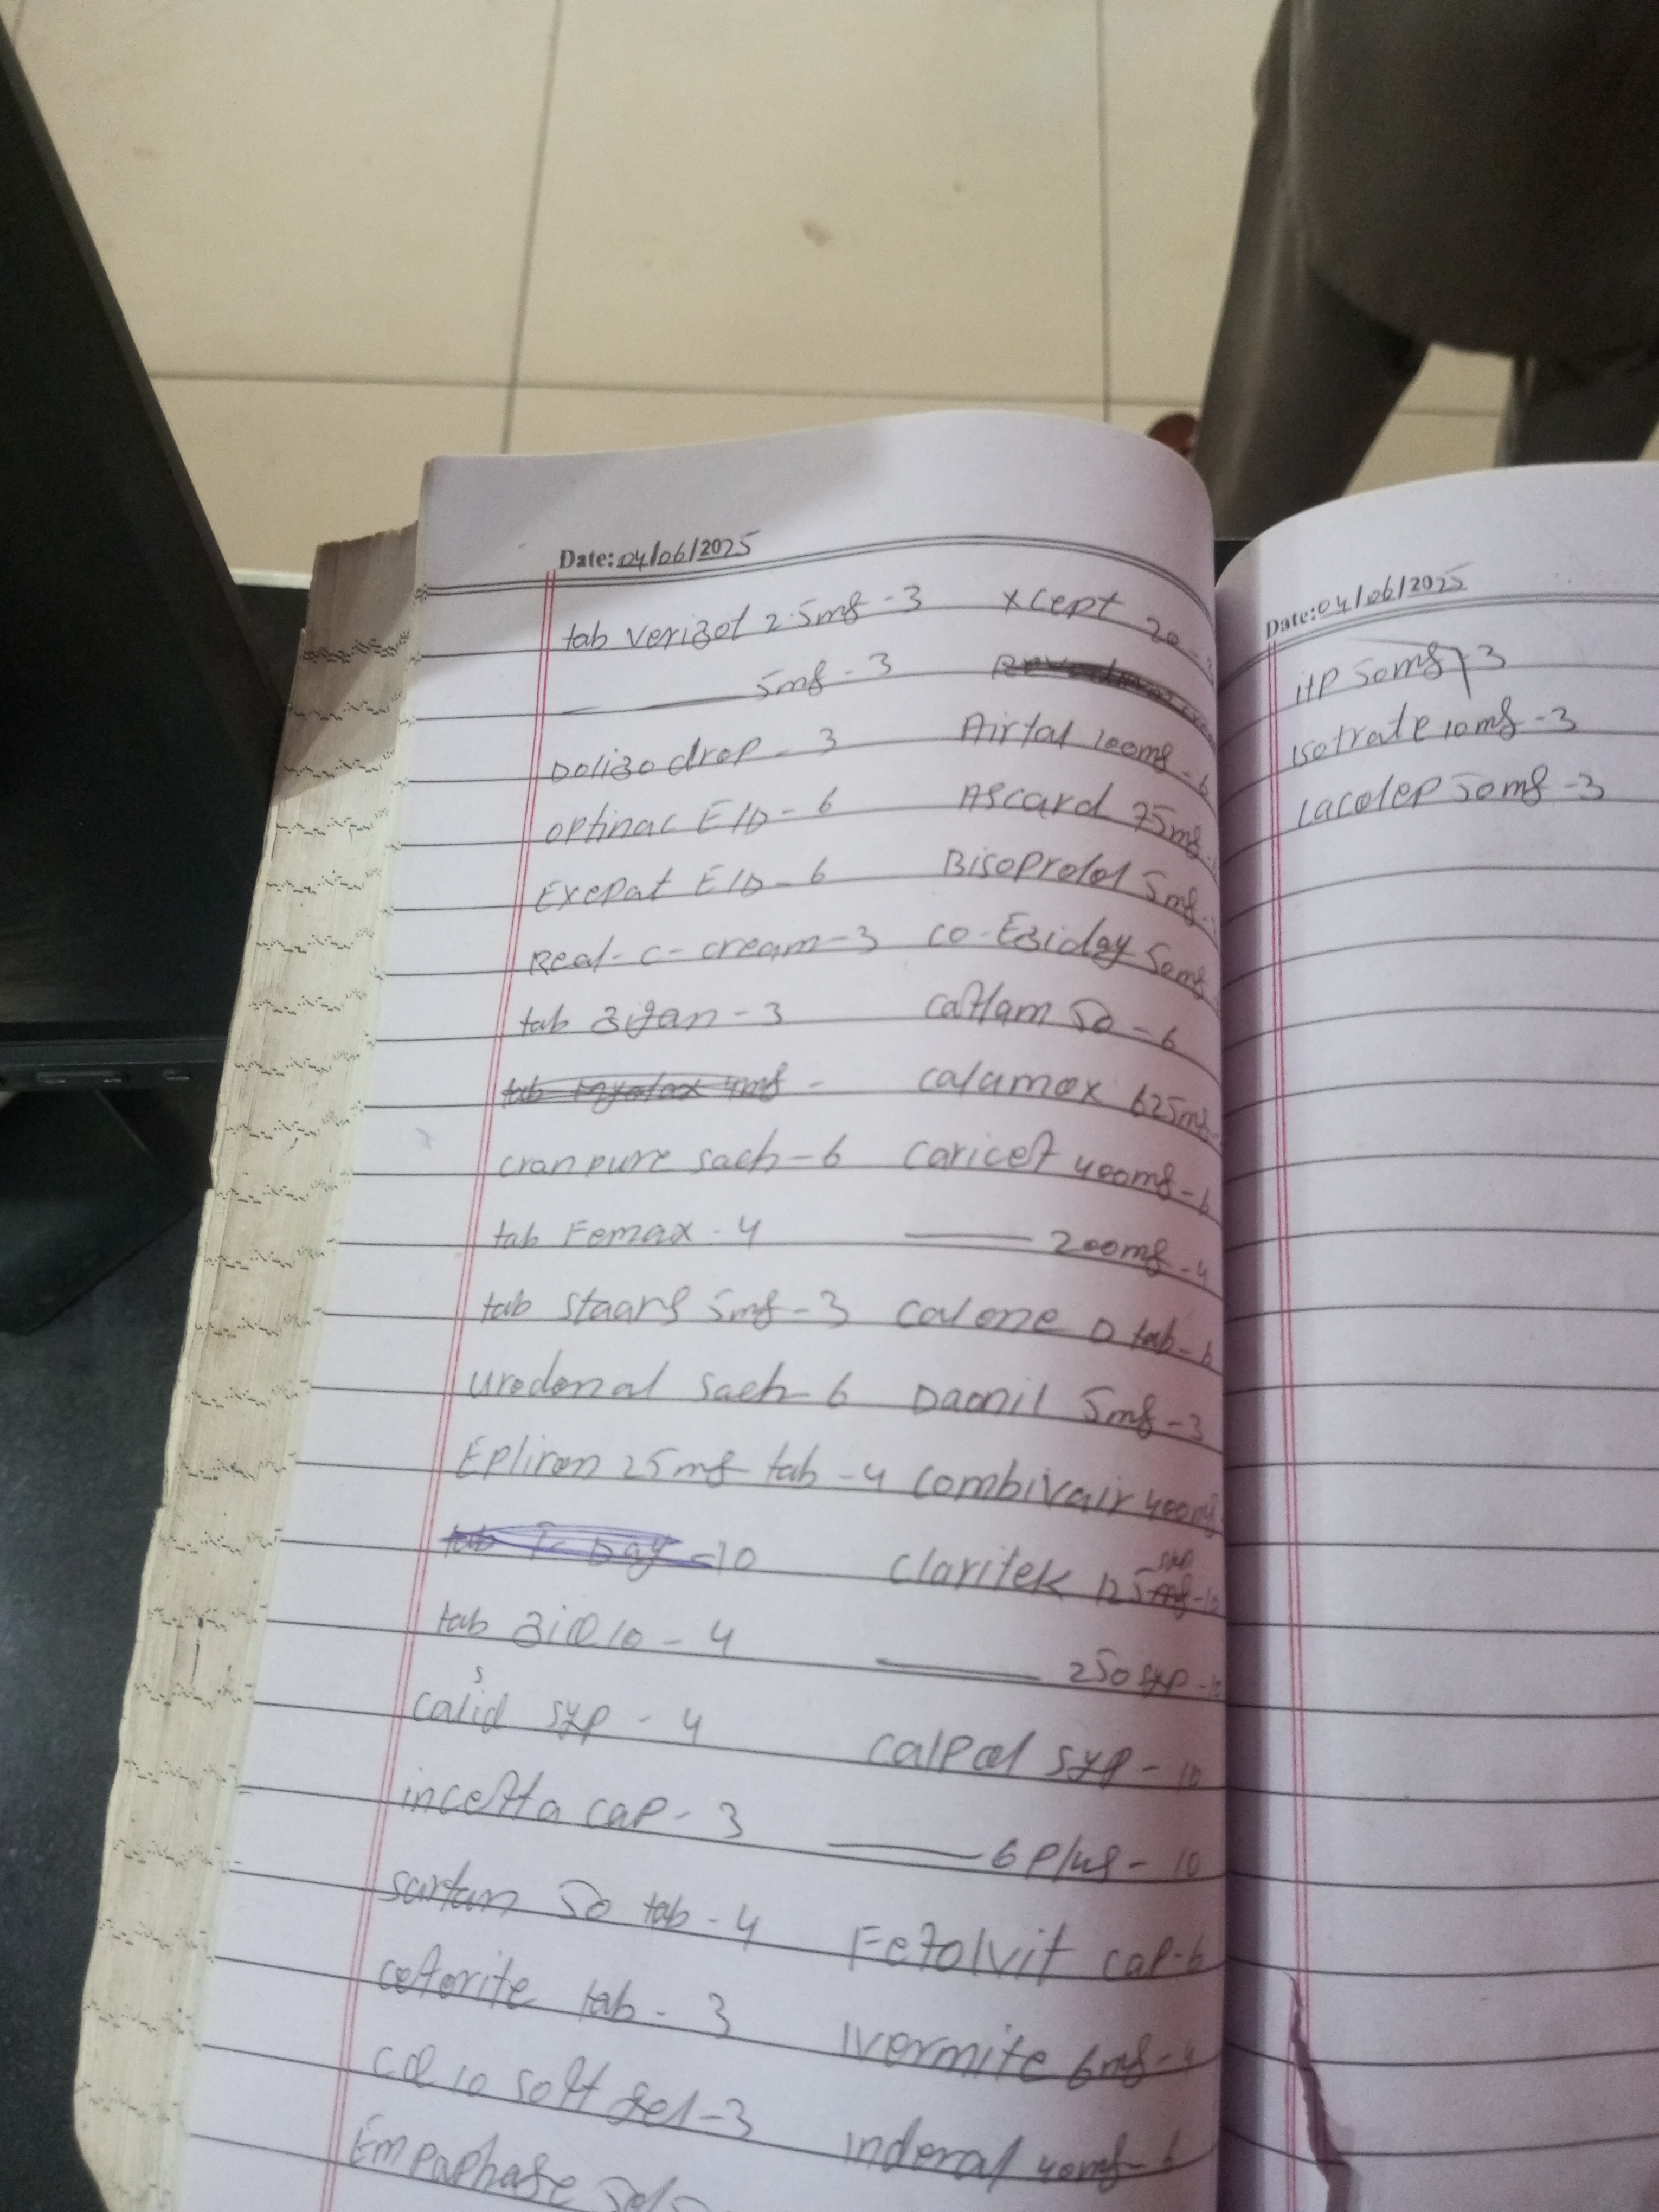 Date: 04/06/2025
tab verizot 2.5mg - 3
5mg - 3
Dolizo drop - 3
optinac E/D - 6
Exepat E/D - 6
Real-c-cream-3
tab zigan - 3
cranpure sach-6
tab Femax - 4
tab staarg 5mg-3
uredonal sach-6
Epliron 25mg tab -4
-10
tab 10 - 4
syp - 4
cap - 3
sartan 50 tab - 4
tab - 3
10 soft gel-3
Empaphage
xcept 20
Airtal 100mg - 6
Ascard 75mg
Bisoprolol 5mg
co-Eziday 50mg
caflam 50 - 6
calamox 625mg
caricef 400mg-6
200mg-4
calone D tab-6
Daonil 5mg-3
combivair 400mg
claritek 125 syp -10
250 syp
calpol syp - 10
6 plus - 10
Fefolvit cap-6
Ivermite 6mg-4
inderal 40mg-6
Date: 04/06/2025
itp 50mg -3
isotrate 10mg -3
lacolep 50mg -3